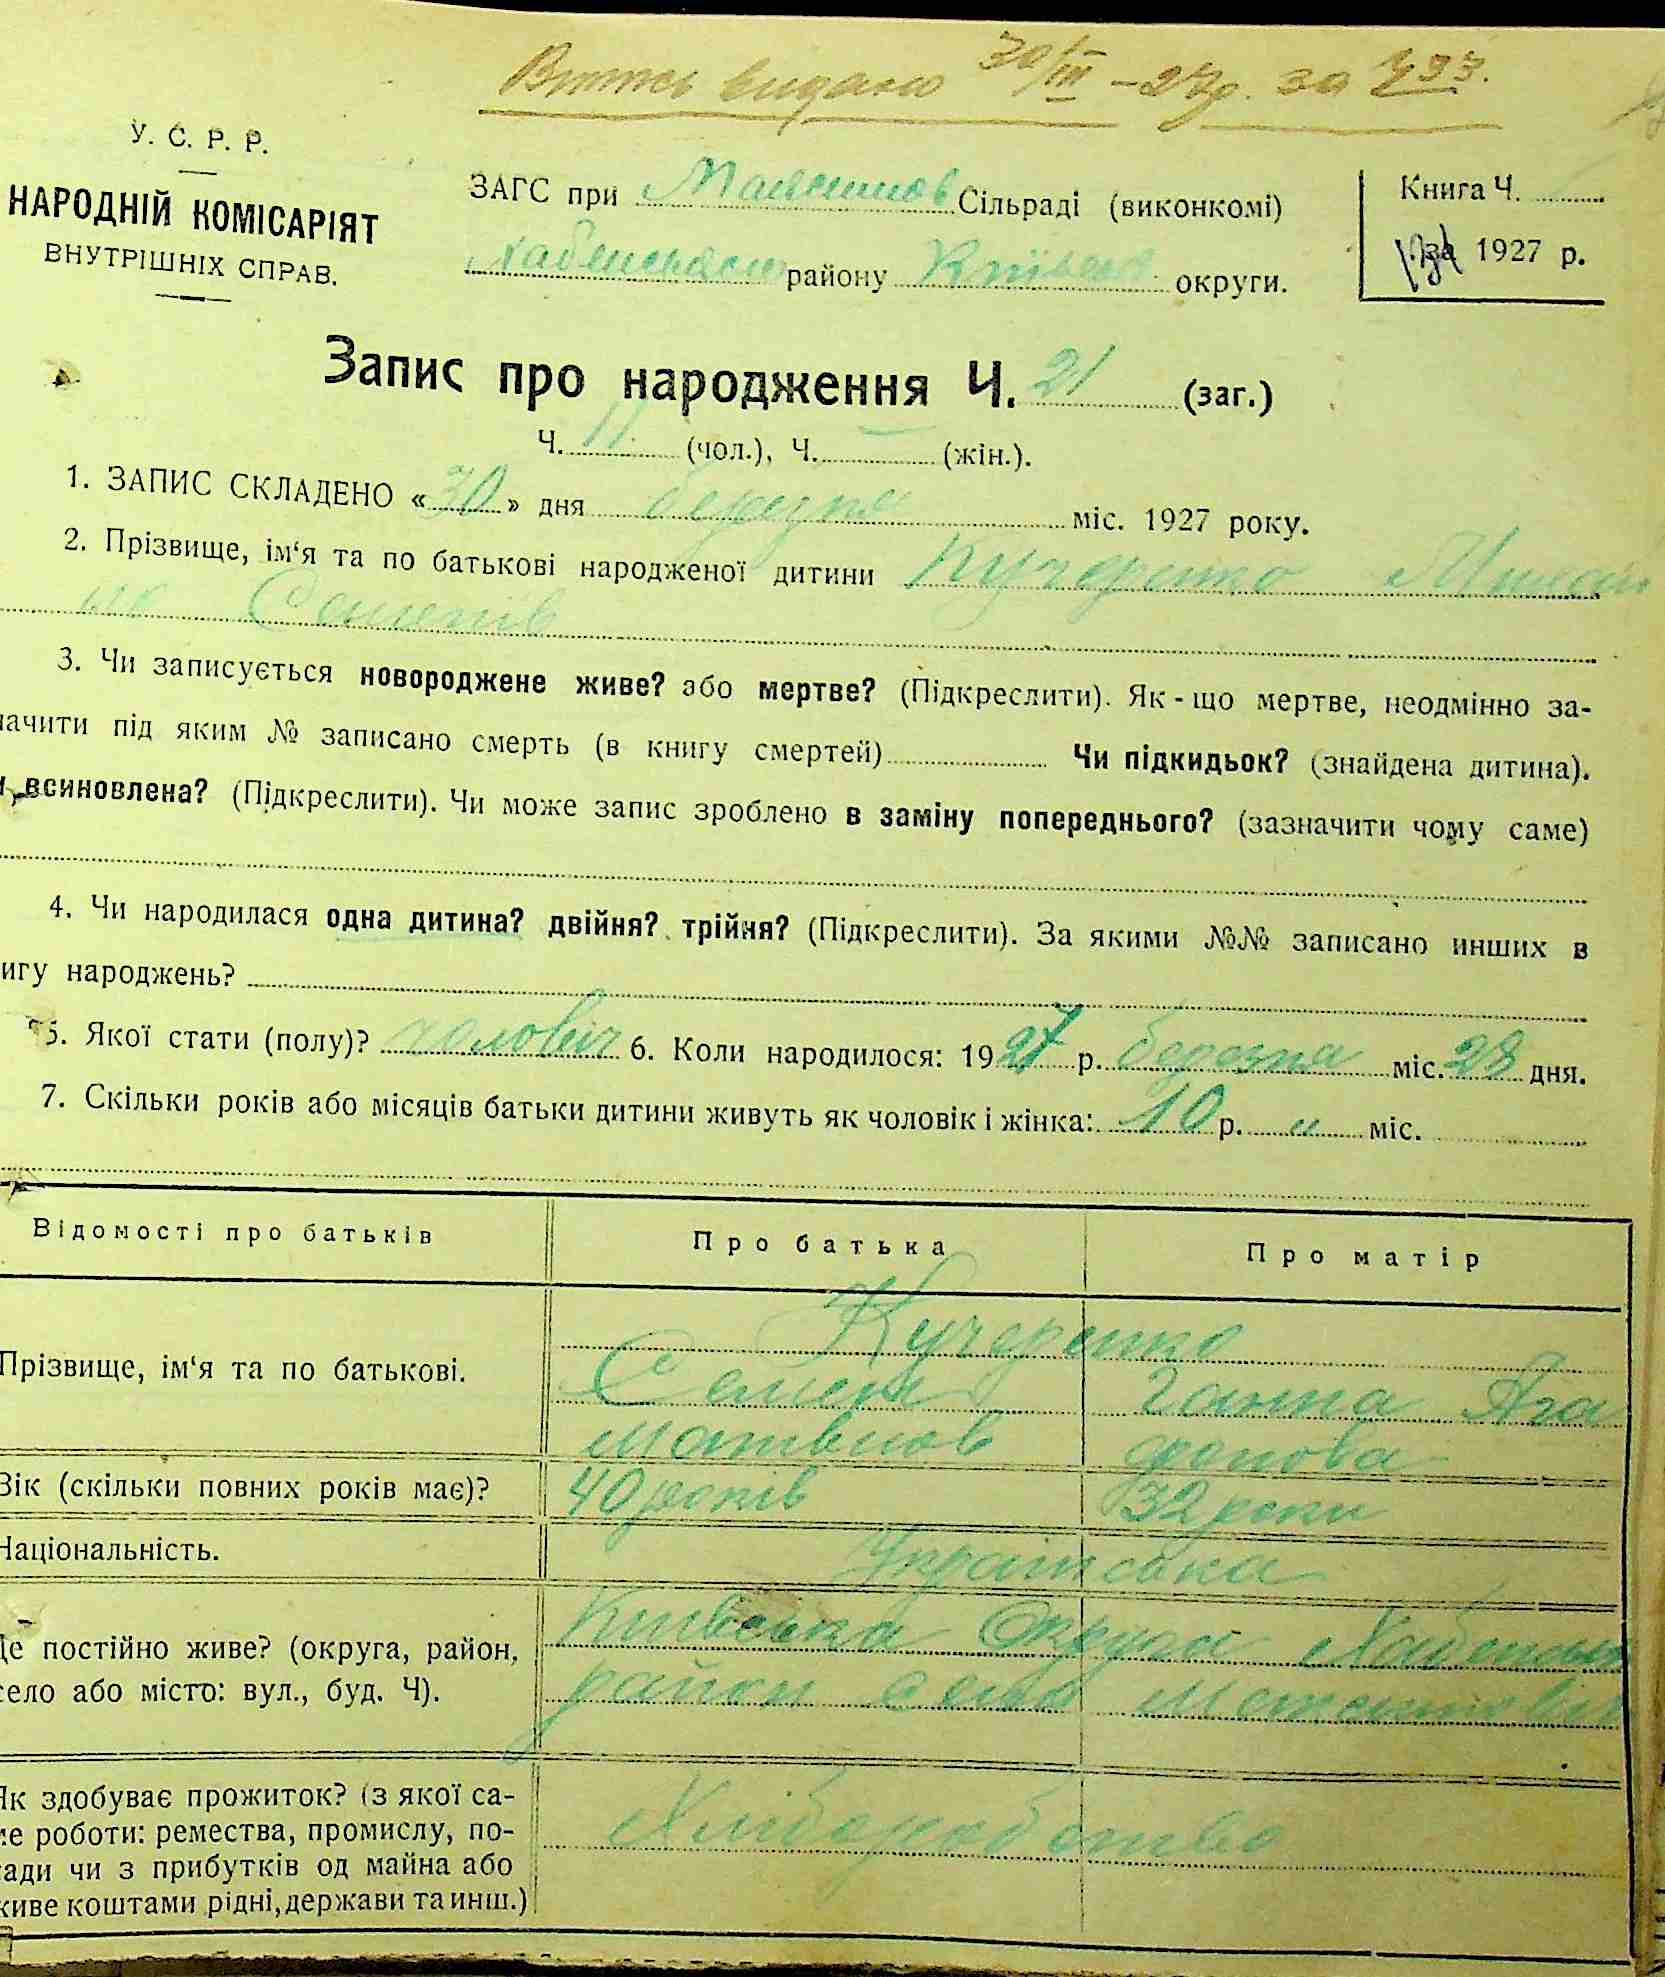 видано 30/III – 27р. за
У. С. Р. Р.
НАРОДНІЙ КОМІСАРІЯТ
ВНУТРІШНІХ СПРАВ.
ЗАГС при Сільраді (виконкомі)
району округи.
Книга Ч.
1927 р.
Запис про народження Ч. 21 (заг.)
Ч. 11 (чол.), Ч. — (жін.).
1. ЗАПИС СКЛАДЕНО «30» дня березня міс. 1927 року.
2. Прізвище, ім‘я та по батькові народженої дитини Кучеренко
3. Чи записується новороджене живе? або мертве? (Підкреслити). Як-що мертве, неодмінно за-
начити під яким № записано смерть (в книгу смертей) Чи підкидьок? (знайдена дитина).
всиновлена? (Підкреслити). Чи може запис зроблено в заміну попереднього? (зазначити чому саме)
4. Чи народилася одна дитина? двійня? трійня? (Підкреслити). За якими №№ записано инших в
игу народжень?
5. Якої стати (полу)? чоловіч 6. Коли народилося: 1927 р. березня міс. 28 дня.
7. Скільки років або місяців батьки дитини живуть як чоловік і жінка: 10 р. „ міс.
Відомості про батьків Про батька Про матір
Прізвище, ім‘я та по батькові.
Кучеренко
Семен Ганна Ага
фонова
Вік (скільки повних років має)? 40 років 32 роки
Національність. Українська
Де постійно живе? (округа, район,
село або місто: вул., буд. Ч).
Київська Округа
район село
Як здобуває прожиток? (з якої са-
ме роботи: ремества, промислу, по-
сади чи з прибутків од майна або
живе коштами рідні, держави та инш.)
Хліборобство